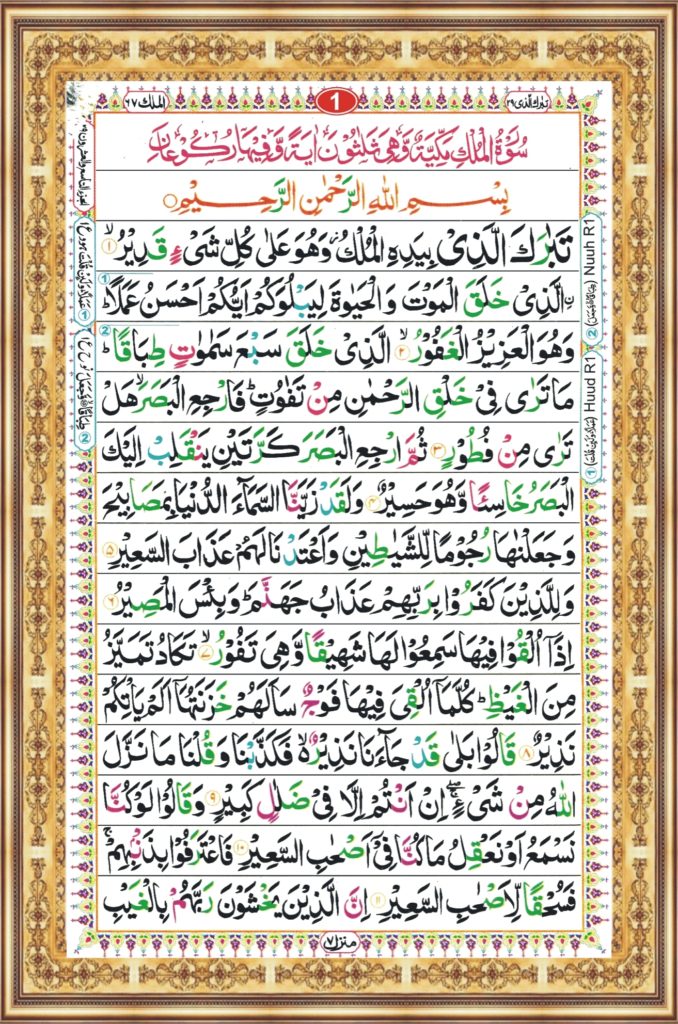 الملك ٦٧
1
تبٰرك الذی ٢٩
سُوْرَةُ الْمُلْكِ مَكِّيَّةٌ وَّهِیَ ثَلٰثُوْنَ اٰيَةً وَّفِيْهَا رُكُوْعَانِ
بِسْمِ اللهِ الرَّحْمٰنِ الرَّحِيْمِ
تَبٰرَكَ الَّذِیْ بِيَدِهِ الْمُلْكُ وَهُوَ عَلٰی كُلِّ شَیْءٍ قَدِيْرُ ۙ﴿١﴾
ۨالَّذِیْ خَلَقَ الْمَوْتَ وَ الْحَيٰوةَ لِيَبْلُوَكُمْ اَيُّكُمْ اَحْسَنُ عَمَلًا ؕ
وَهُوَ الْعَزِيْزُ الْغَفُوْرُ ۙ﴿٢﴾ الَّذِیْ خَلَقَ سَبْعَ سَمٰوٰتٍ طِبَاقًا ؕ
مَا تَرٰی فِیْ خَلْقِ الرَّحْمٰنِ مِنْ تَفٰوُتٍ ؕ فَارْجِعِ الْبَصَرَ ۙ هَلْ
تَرٰی مِنْ فُطُوْرٍ ﴿٣﴾ ثُمَّ ارْجِعِ الْبَصَرَ كَرَّتَيْنِ يَنْقَلِبْ اِلَيْكَ
الْبَصَرُ خَاسِئًا وَّهُوَ حَسِيْرٌ ﴿٤﴾ وَلَقَدْ زَيَّنَّا السَّمَآءَ الدُّنْيَا بِمَصَابِيْحَ
وَجَعَلْنٰهَا رُجُوْمًا لِّلشَّيٰطِيْنِ وَاَعْتَدْنَا لَهُمْ عَذَابَ السَّعِيْرِ ﴿٥﴾
وَلِلَّذِيْنَ كَفَرُوْا بِرَبِّهِمْ عَذَابُ جَهَنَّمَ ؕ وَبِئْسَ الْمَصِيْرُ ﴿٦﴾
اِذَاۤ اُلْقُوْا فِيْهَا سَمِعُوْا لَهَا شَهِيْقًا وَّهِیَ تَفُوْرُ ۙ﴿٧﴾ تَكَادُ تَمَيَّزُ
مِنَ الْغَيْظِ ؕ كُلَّمَاۤ اُلْقِیَ فِيْهَا فَوْجٌ سَاَلَهُمْ خَزَنَتُهَاۤ اَلَمْ يَاْتِكُمْ
نَذِيْرٌ ﴿٨﴾ قَالُوْا بَلٰی قَدْ جَآءَنَا نَذِيْرٌ ۙ۬ فَكَذَّبْنَا وَقُلْنَا مَا نَزَّلَ
اللهُ مِنْ شَیْءٍ ۖۚ اِنْ اَنْتُمْ اِلَّا فِیْ ضَلٰلٍ كَبِيْرٍ ﴿٩﴾ وَقَالُوْا لَوْ كُنَّا
نَسْمَعُ اَوْ نَعْقِلُ مَا كُنَّا فِیْۤ اَصْحٰبِ السَّعِيْرِ ﴿١٠﴾ فَاعْتَرَفُوْا بِذَنْۢبِهِمْ ۚ
فَسُحْقًا لِّاَصْحٰبِ السَّعِيْرِ ﴿١١﴾ اِنَّ الَّذِيْنَ يَخْشَوْنَ رَبَّهُمْ بِالْغَيْبِ
منزل ٧
Nuuh R1
Huud R1